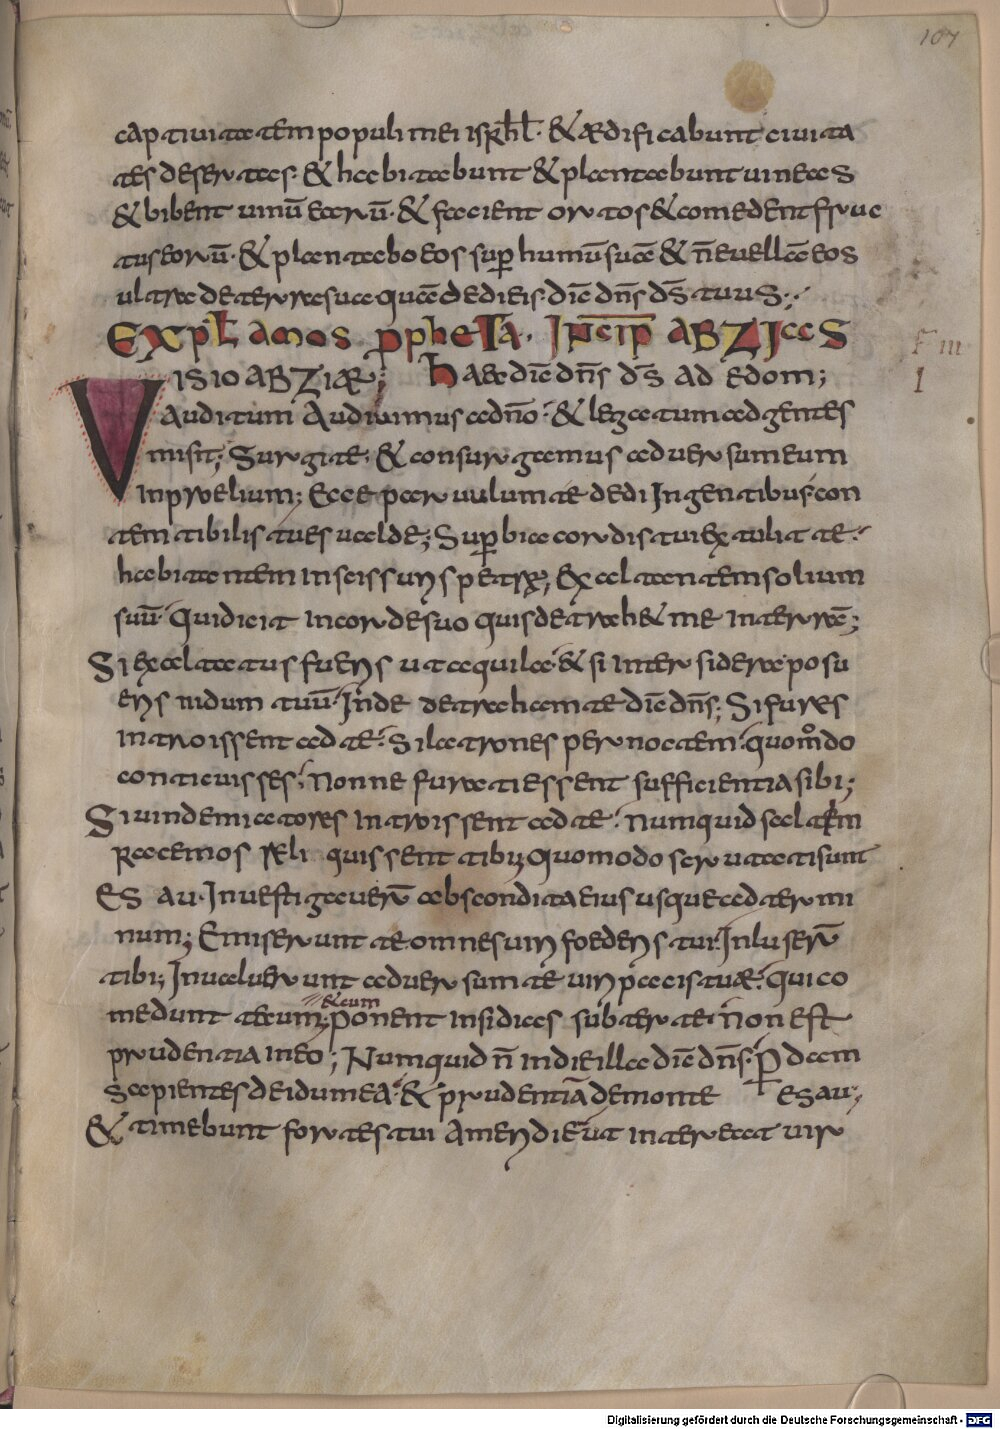 107
captiuitatem populi mei isrhl· & ædificabunt ciuita
tes desertas· & habitabunt & plantabunt uineas
& bibent uinū earū· & facient ortos & comedent fruc
tus eorū· & plantabo eos sup humū suā & n̄ euellā eos
ultra de terra sua quā dedi eis· diē dn̄s ds̄ tuus·
Expl amos ppheta· Incip abzias
Visio abziæ; haec diē dn̄s ds̄ ad edom;
auditum audiuimus a dn̄o· & legatum ad gentes
misit; Surgite· & consurgamus aduersum eum
in prelium; Ecce paruulum te dedi in gentibus· con
temtibilis tu es ualde; Superbia cordis tui extulit te·
habitantem in scissuris petræ; exaltantem solium
suū· Qui dicit in corde suo quis detrah& me in terrā;
Si exaltatus fueris ut aquila· & si inter sidera posu
eris nidum tuū· Inde detraham te diē dn̄s; Si fures
introissent ad te· Si latrones per noctem· quomodo
conticuisses· nonne furati essent sufficientia sibi;
Si uindemiatores introissent ad te· numquid saltem
racemos reliquissent tibi; Quomodo scrutati sunt
esau· Inuestigauerū abscondita eius usque ad termi
num; Emiserunt te omnes uiri foederis tui· Inluserū
tibi; Inualuerunt aduersum te uiri pacis tuæ· qui co
medunt tecum;
& cum
ponent insidias subter te· non est
prudentia in eo; Numquid n̄ in die illa diē dn̄s· p̄dam
sapientes de idumea· & prudentiā de monte esau;
& timebunt fortes tui a meridie· ut intereat uir
F III
I
Digitalisierung gefördert durch die Deutsche Forschungsgemeinschaft - DFG